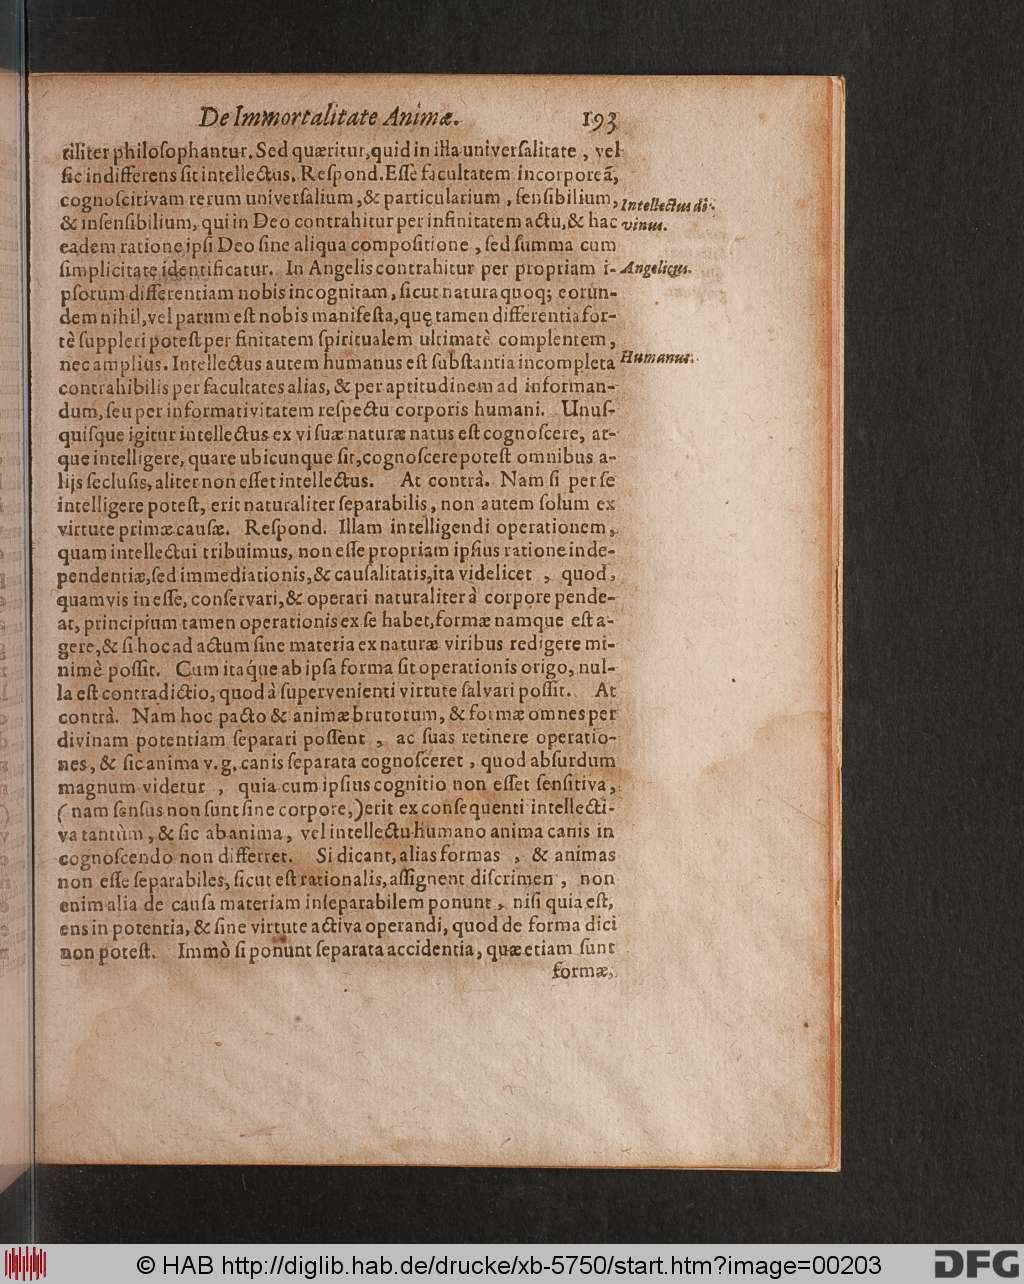 De Immortalitate Animæ. 193
tiliter philoſophantur. Sed quæritur, quid in illa univerſalitate, vel
ſic indifferens ſit intellectus. Reſpond. Eſſe facultatem incorporeã,
cognoſcitivam rerum univerſalium, & particularium, ſenſibilium,
Intellectus di-
& inſenſibilium, qui in Deo contrahitur per infinitatem actu, & hac
vinus.
eadem ratione ipſi Deo ſine aliqua compoſitione, ſed ſumma cum
ſimplicitate identificatur. In Angelis contrahitur per propriam i-
Angelicus.
pſorum differentiam nobis incognitam, ſicut natura quoq; eorun-
dem nihil, vel parum eſt nobis manifeſta, quę tamen differentia for-
tè ſuppleri poteſt per finitatem ſpiritualem ultimatè complentem,
nec amplius. Intellectus autem humanus eſt ſubſtantia incompleta
Humanus.
contrahibilis per facultates alias, & per aptitudinem ad informan-
dum, ſeu per informativitatem reſpectu corporis humani. Unuſ-
quiſque igitur intellectus ex vi ſuæ naturæ natus eſt cognoſcere, at-
que intelligere, quare ubicunque ſit, cognoſcere poteſt omnibus a-
lijs ſecluſis, aliter non eſſet intellectus. At contrà. Nam ſi per ſe
intelligere poteſt, erit naturaliter ſeparabilis, non autem ſolum ex
virtute primæ cauſæ. Reſpond. Illam intelligendi operationem,
quam intellectui tribuimus, non eſſe propriam ipſius ratione inde-
pendentiæ, ſed immediationis, & cauſalitatis, ita videlicet, quod,
quamvis in eſſe, conſervari, & operari naturaliter à corpore pende-
at, principium tamen operationis ex ſe habet, formæ namque eſt a-
gere, & ſi hoc ad actum ſine materia ex naturæ viribus redigere mi-
nimè poſſit. Cum itaque ab ipſa forma ſit operationis origo, nul-
la eſt contradictio, quod à ſupervenienti virtute ſalvari poſſit. At
contrà. Nam hoc pacto & animæ brutorum, & formæ omnes per
divinam potentiam ſeparari poſſent, ac ſuas retinere operatio-
nes, & ſic anima v. g. canis ſeparata cognoſceret, quod abſurdum
magnum videtur, quia cum ipſius cognitio non eſſet ſenſitiva,
(nam ſenſus non ſunt ſine corpore,) erit ex conſequenti intellecti-
va tantùm, & ſic ab anima, vel intellectu humano anima canis in
cognoſcendo non differret. Si dicant, alias formas, & animas
non eſſe ſeparabiles, ſicut eſt rationalis, aſſignent diſcrimen, non
enim alia de cauſa materiam inſeparabilem ponunt, niſi quia eſt,
ens in potentia, & ſine virtute activa operandi, quod de forma dici
non poteſt. Immò ſi ponunt ſeparata accidentia, quæ etiam ſunt
formæ,
© HAB http://diglib.hab.de/drucke/xb-5750/start.htm?image=00203
DFG